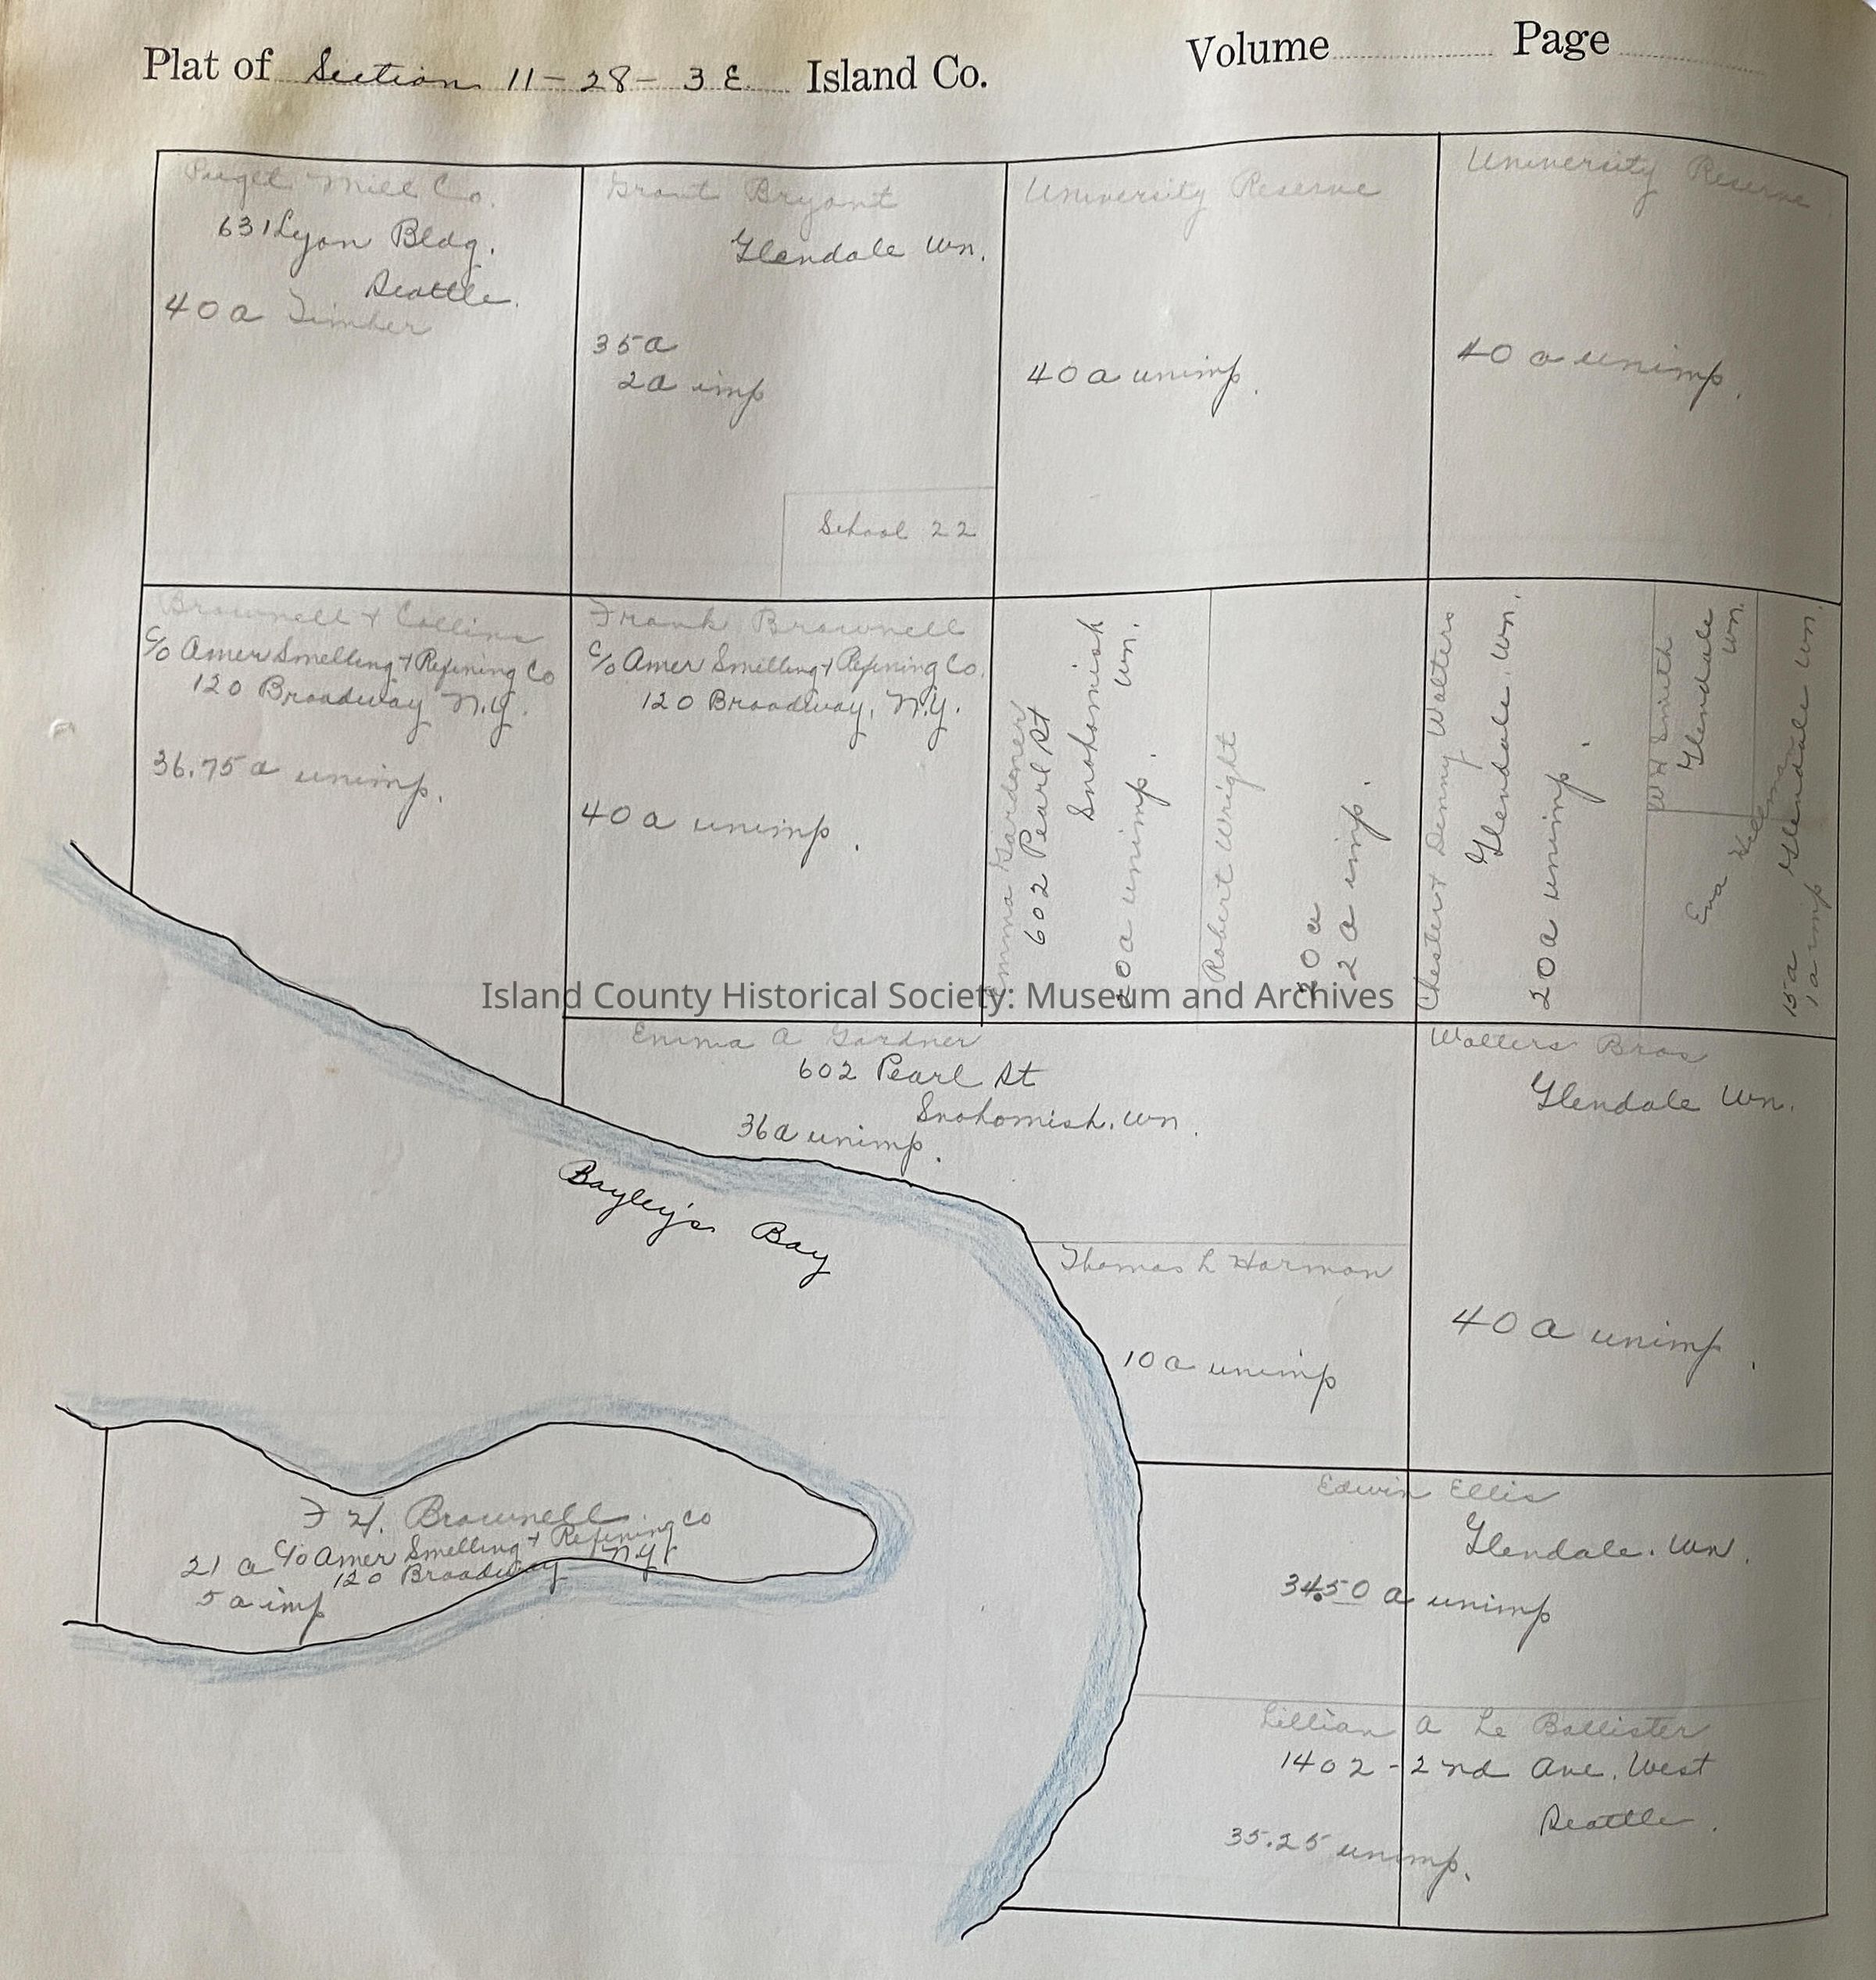 Plat of Section 11-28-3 E. Island Co.
Volume Page
Puget Mill Co.
631 Lyon Bldg.
Seattle.
40 a Timber
Grant Bryant
Glendale Wn.
35 a
2 a imp
School 22
University Reserve
40 a unimp.
University Reserve
40 a unimp.
Brownell & Collins
c/o Amer Smelling & Refining Co
120 Broadway N.Y.
36.75 a unimp.
Frank Brownell
c/o Amer Smelling & Refining Co.
120 Broadway, N.Y.
40 a unimp.
Emma Gardener
602 Pearl St
Snohomish
Wn.
20 a unimp.
Robert Wright
20 a
2 a imp.
Chester & Denny Walters
Glendale. Wn.
20 a unimp.
W H Smith
Glendale
Wn.
Eva
Glendale Wn.
15 a
1 a imp
Island County Historical Society: Museum and Archives
Emma A Gardner
602 Pearl St
Snohomish. Wn.
36 a unimp.
Walters Bros
Glendale Wn.
40 a unimp.
Bayley's Bay
Thomas L Harmon
10 a unimp
F H. Brownell
c/o Amer Smelling & Refining Co
120 Broadway N.Y.
21 a
5 a imp
Edwin Ellis
Glendale. Wn.
34.50 a unimp
Lillian A Le Ballister
1402-2nd Ave. West
Seattle.
35.25 unimp.